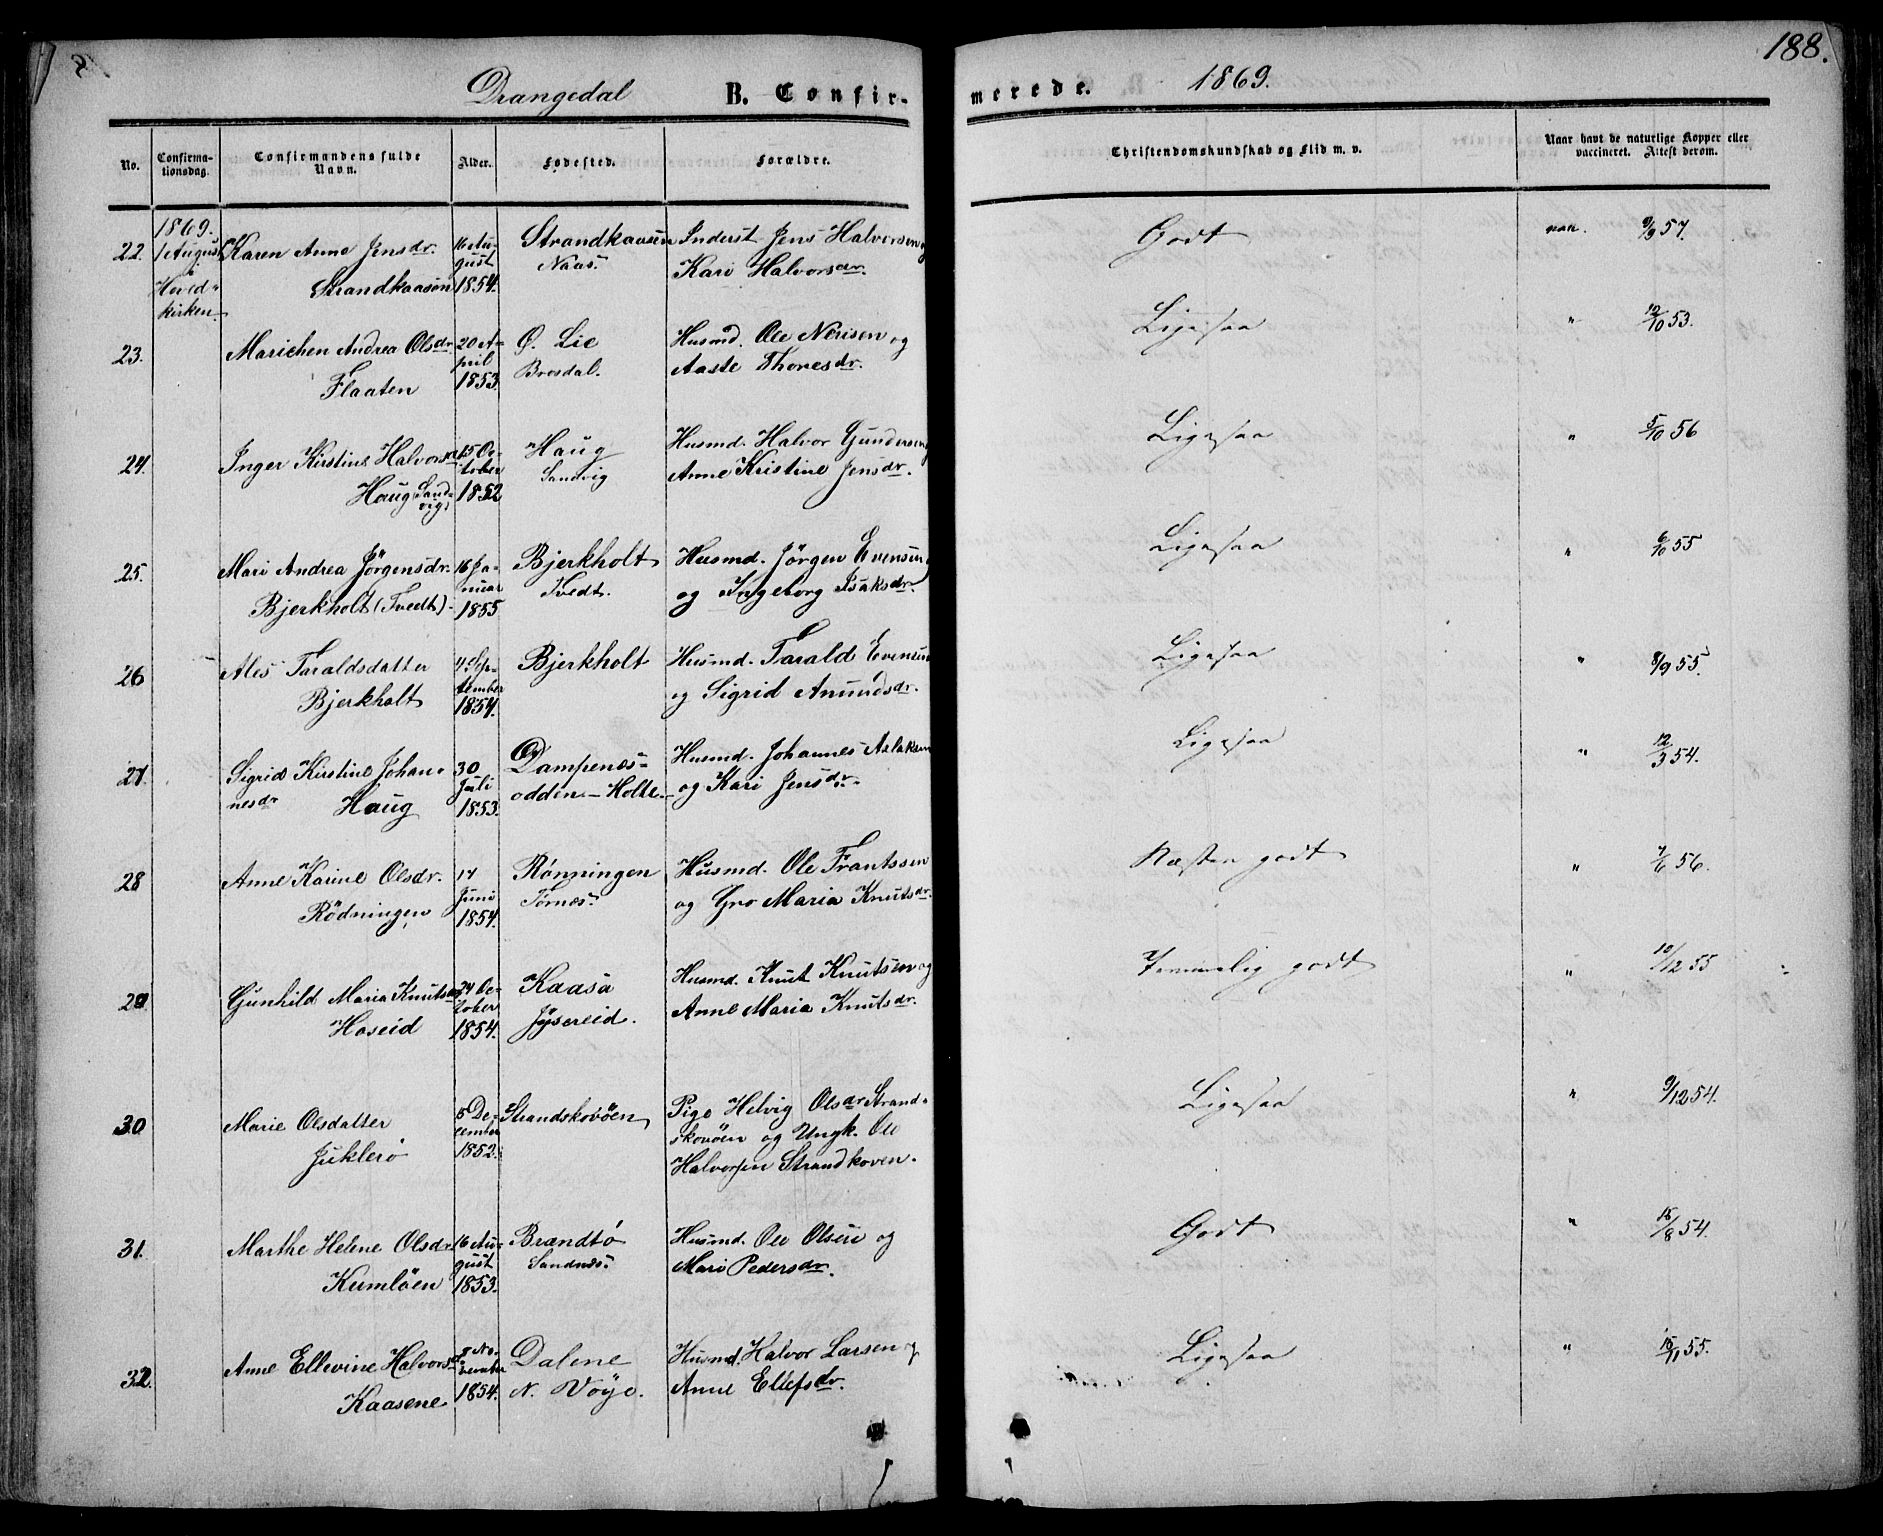 188.
Drangedal B. Confir-
merede. 1869.
No. Confirma-
tionsdag. Confirmandens fulde
Navn. Alder. Fødested. Forældre. Christendomskundskab og Flid m. v. Naar havt de naturlige Kopper eller
vaccineret. Attest derom.
22. 1869.
1 August
i
Hoved-
kirken
Karen Anne Jensdr.
Strandkaasen
16 Au-
gust
1854.
Strandkaasen
Naas.
Inderst Jens Halvorsen og
Kari Halvorsdr.
Godt
vac. 9/9 57.
23. Marichen Andrea Olsdr.
Flaaten
20 A-
pril
1853.
Ø. Lie
Brosdal.
Husmd. Ole Nerisen og
Aaste Thoresdr.
Ligesaa
" 12/10 53.
24. Inger Kirstine Halvorsdr.
Haug (Sand-
vig)
15 Oc-
tober
1852
Haug
Sandvig
Husmd. Halvor Gundersen og
Anne Kristine Jensdr.
Ligesaa
" 5/10 56
25. Mari Andrea Jörgensdr.
Bjerkholt (Tvedt).
16 Ja-
nuar
1855
Bjerkholt
Tvedt.
Husmd. Jørgen Evensen
og Ingeborg Isaksdr.
Ligesaa
" 6/10 55
26 Ales Taraldsdatter
Bjerkholt
4 Sep-
tember
1854.
Bjerkholt
Husmd. Tarald Evensen
og Sigrid Amundsdr.
Ligesaa
" 8/9 55.
27. Sigrid Kirstine Johan-
nesdr
Haug
30
Juli
1853.
Dampenæs-
odden - Holte.
Husmd. Johannes Aslaksen
og Kari Jensdr.
Ligesaa
" 12/3 54.
28 Anne Karine Olsdr.
Rödningen
17
Juni
1854.
Rønningen
Tornæs.
Husmd. Ole Frantssen
og Gro Maria Knutsdr.
Næsten godt
" 7/6 56.
29. Gunhild Maria Knutsdr
Hoseid
24 Oc-
tober
1854.
Kaasa
Jysereid.
Husmd. Knut Knutsen og
Anne Maria Knutsdr.
Temmelig godt
" 10/12 55
30 Marie Olsdatter
Juklerö
5 De-
cember
1852.
Strandskovöen
Pige Helvig Olsdr Strand-
skovöen og Ungk. Ole
Halvorsen Strandkoven.
Ligesaa
" 9/12 54.
31. Marthe Helene Olsdr.
Kumlöen
16 Au-
gust
1853.
Brandtö
Sandnæs.
Husmd. Ole Olsen og
Mari Pedersdr.
Godt
" 15/8 54.
32. Anne Ellevine Halvorsdr.
Kaasene
8 No-
vember
1854.
Dalene
N. Voje.
Husmd. Halvor Larsen og
Anne Ellefsdr.
Ligesaa
" 15/11 55.